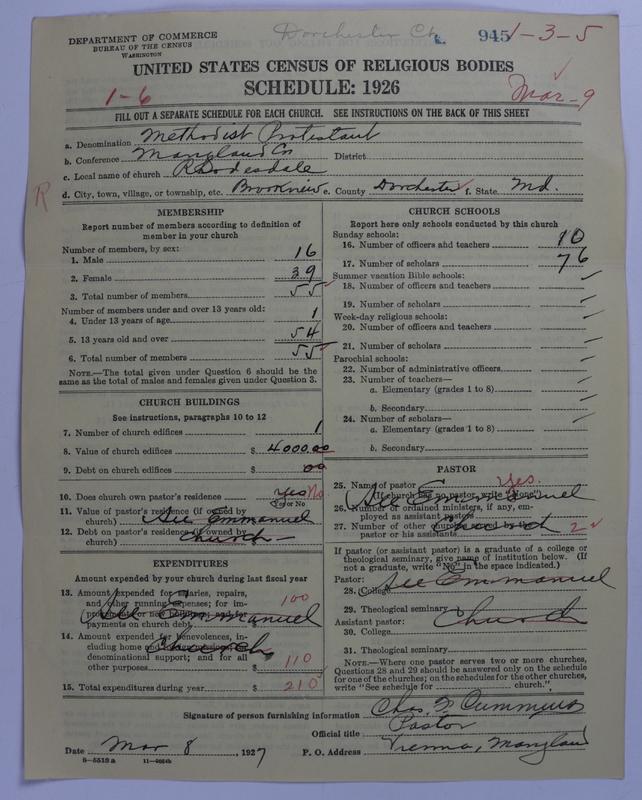 Dorchester Co. 945 1-3-5
DEPARTMENT OF COMMERCE
BUREAU OF THE CENSUS
WASHINGTON
UNITED STATES CENSUS OF RELIGIOUS BODIES
SCHEDULE: 1926
1-6
Mar-9
FILL OUT A SEPARATE SCHEDULE FOR EACH CHURCH. SEE INSTRUCTIONS ON THE BACK OF THIS SHEET
a. Denomination Methodist Protestant
b. Conference Maryland Co District
c. Local name of church
R
d. City, town, village, or township, etc. Brookview e. County Dorchester f. State Md.
MEMBERSHIP
Report number of members according to definition of
member in your church
Number of members, by sex:
1. Male 16
2. Female 39
3. Total number of members 55
Number of members under and over 13 years old:
4. Under 13 years of age 1
5. 13 years old and over 54
6. Total number of members 55
NOTE.—The total given under Question 6 should be the
same as the total of males and females given under Question 3.
CHURCH BUILDINGS
See instructions, paragraphs 10 to 12
7. Number of church edifices 1
8. Value of church edifices $ 4000.00
9. Debt on church edifices $ 00
10. Does church own pastor's residence yes No
Yes or No
11. Value of pastor's residence (if owned by
church) See Emmanuel
12. Debt on pastor's residence (if owned by
church) Church
EXPENDITURES
Amount expended by your church during last fiscal year
13. Amount expended for salaries, repairs,
and other running expenses; for im-
provements or new buildings; and for
payments on church debt 100
See Emmanuel
14. Amount expended for benevolences, in-
cluding home and foreign missions; for
denominational support; and for all
other purposes $ 110
Church
15. Total expenditures during year $ 210
CHURCH SCHOOLS
Report here only schools conducted by this church
Sunday schools:
16. Number of officers and teachers 10
17. Number of scholars 76
Summer vacation Bible schools:
18. Number of officers and teachers
19. Number of scholars
Week-day religious schools:
20. Number of officers and teachers
21. Number of scholars
Parochial schools:
22. Number of administrative officers
23. Number of teachers—
a. Elementary (grades 1 to 8)
b. Secondary
24. Number of scholars—
a. Elementary (grades 1 to 8)
b. Secondary
PASTOR
25. Name of pastor Yes.
(If church has no pastor, write "None")
See Emmanuel
26. Number of ordained ministers, if any, em-
ployed as assistant pastors
27. Number of other churches served by the
pastor or his assistants 2
Church
If pastor (or assistant pastor) is a graduate of a college or
theological seminary, give name of institution below. (If
not a graduate, write "No" in the space indicated.)
Pastor: See Emmanuel
28. College
29. Theological seminary
Assistant pastor: Church
30. College
31. Theological seminary
NOTE.—Where one pastor serves two or more churches,
Questions 28 and 29 should be answered only on the schedule
for one of the churches; on the schedules for the other churches,
write "See schedule for church."
Signature of person furnishing information Chas. Cummins
Official title Pastor
Date Mar 8, 1927 P. O. Address Vienna, Maryland
8-5513a